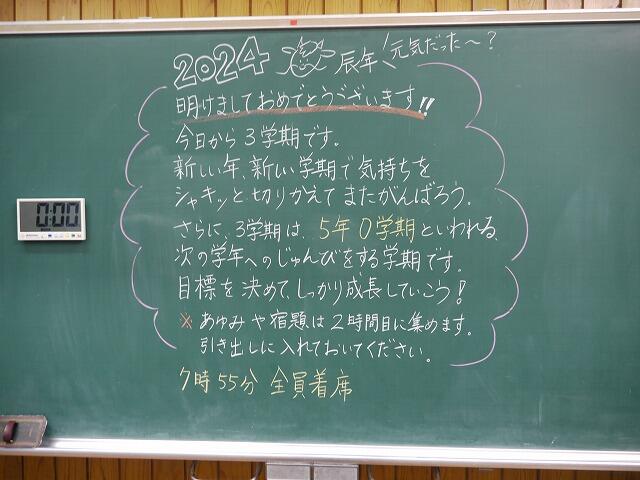 2024 辰年 元気だった～?
明けましておめでとうございます!!
今日から3学期です。
新しい年、新しい学期で気持ちを
シャキッと切りかえてまたがんばろう。
さらに、3学期は、5年0学期といわれる、
次の学年へのじゅんびをする学期です。
目標を決めて、しっかり成長していこう!
※ あゆみや宿題は2時間目に集めます。
引き出しに入れておいてください。
7時55分 全員着席
0:00